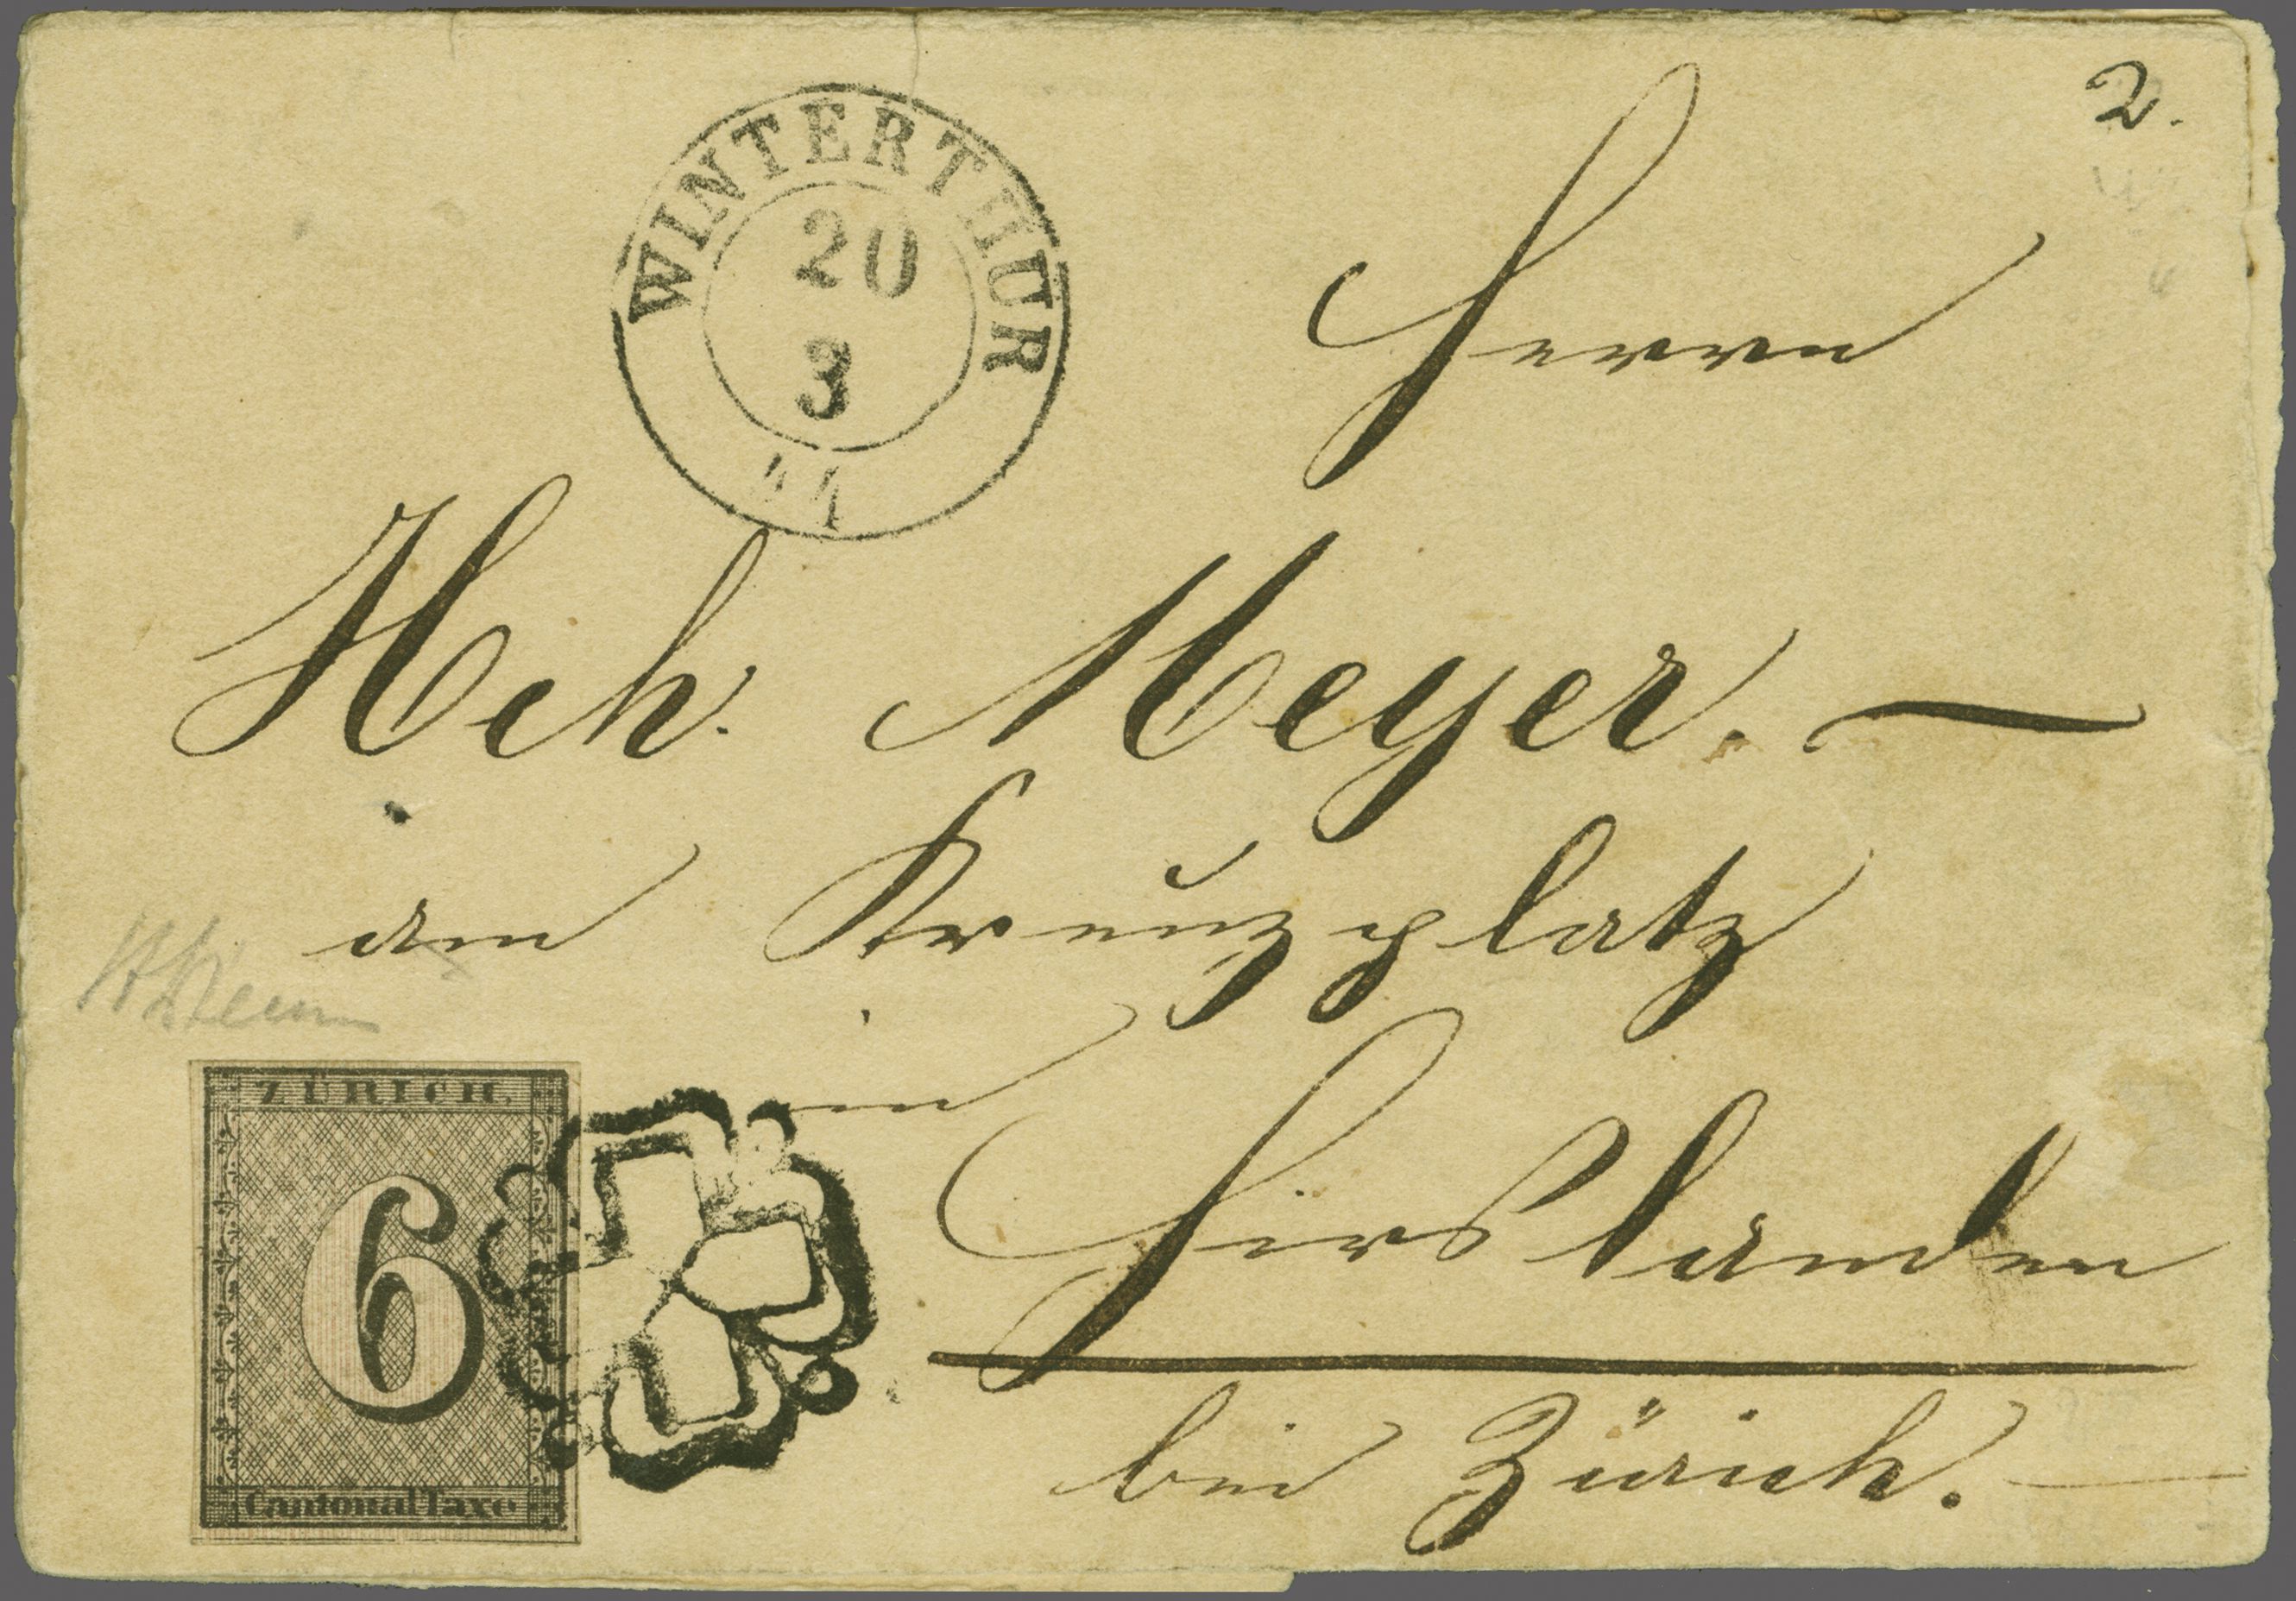 2.
WINTERTHUR
20
3
44
Herrn
Hch. Meyer. —
am Kreuzplatz
in
Hirslanden
bei Zürich. —
ZÜRICH.
6
Cantonal Taxe